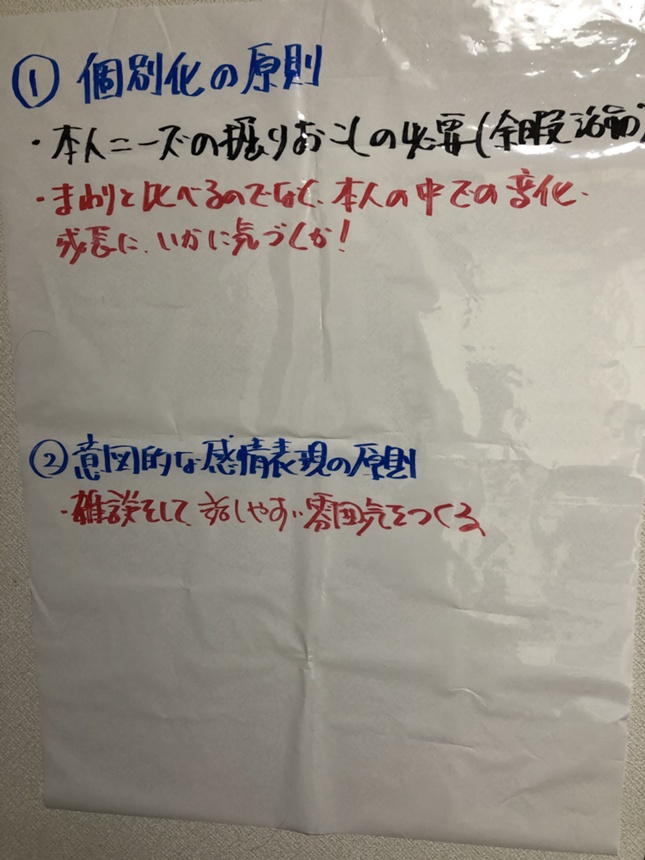 ① 個別化の原則
・本人ニーズの掘りおこしの必要(余暇活動)
・まわりと比べるのでなく、本人の中での変化・
成長に、いかに気づくか!
② 意図的な感情表現の原則
・雑談をして、話しやすい雰囲気をつくる、